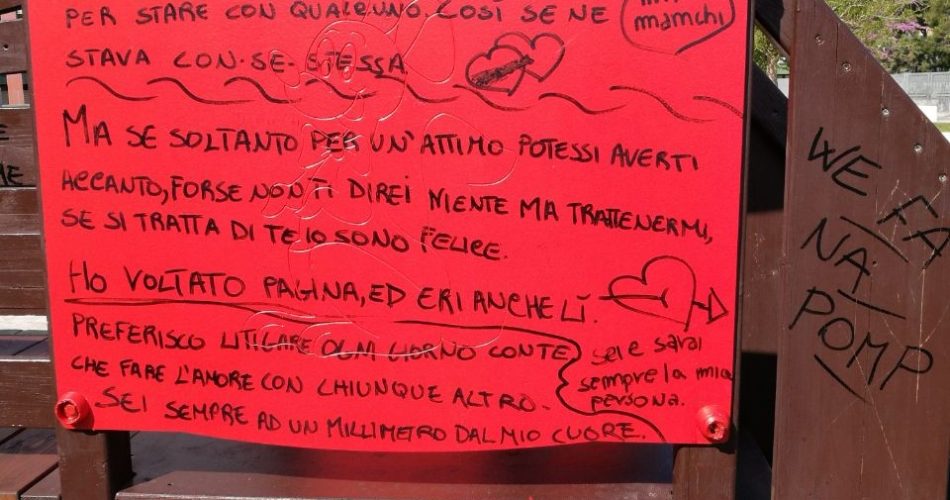 PER STARE CON QUALCUNO. COSÌ SE NE
STAVA CON-SE-STESSA.
mamchi
MA SE SOLTANTO PER UN'ATTIMO POTESSI AVERTI
ACCANTO, FORSE NON TI DIREI NIENTE MA TRATTENERMI,
SE SI TRATTA DI TE IO SONO FELICE.
HO VOLTATO PAGINA, ED ERI ANCHE LÌ.
PREFERISCO LITIGARE OGNI GIORNO CON TE
CHE FARE L'AMORE CON CHIUNQUE ALTRO.
SEI SEMPRE AD UN MILLIMETRO DAL MIO CUORE.
sei e sarai
sempre la mia
persona.
WE FA
NA
POMP
ME